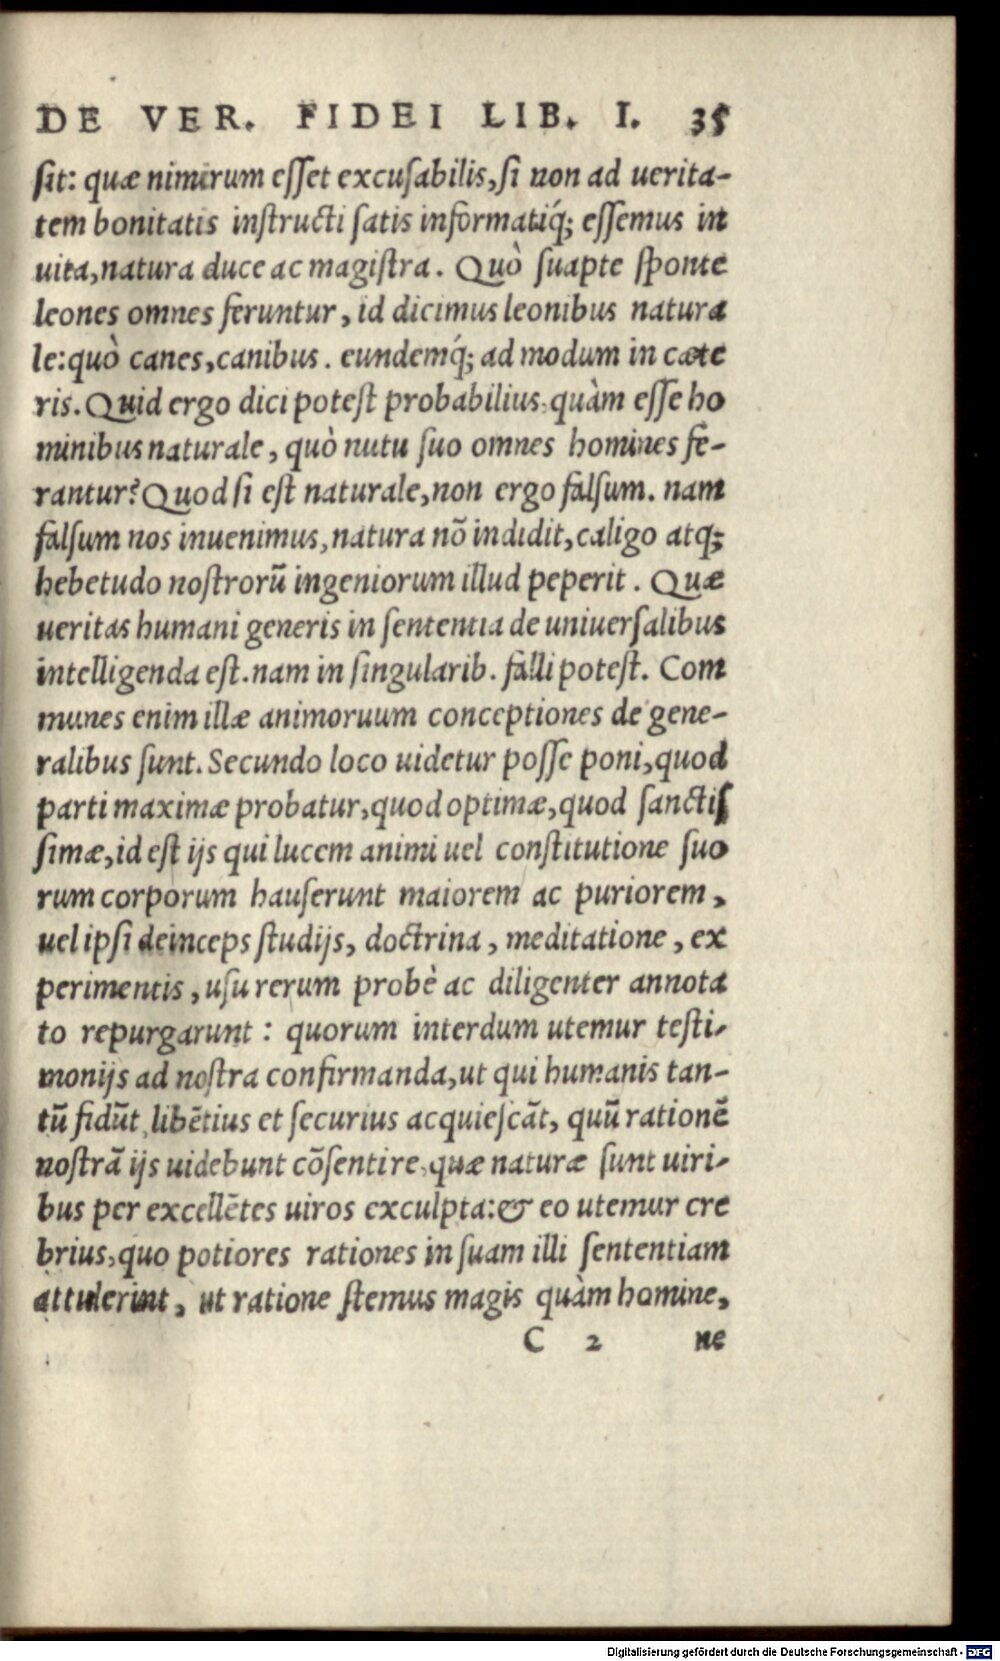 DE VER. FIDEI LIB. I. 35
sit: quæ nimirum esset excusabilis, si non ad uerita-
tem bonitatis instructi satis informatiq́; essemus in
uita, natura duce ac magistra. Quò suapte sponte
leones omnes feruntur, id dicimus leonibus natura
le: quò canes, canibus. eundemq́; ad modum in cæte
ris. Quid ergo dici potest probabilius, quàm esse ho
minibus naturale, quò nutu suo omnes homines fe-
rantur? Quod si est naturale, non ergo falsum. nam
falsum nos inuenimus, natura nō indidit, caligo atq;
hebetudo nostrorū ingeniorum illud peperit. Quæ
ueritas humani generis in sententia de uniuersalibus
intelligenda est. nam in singularib. falli potest. Com
munes enim illæ animoruum conceptiones de gene-
ralibus sunt. Secundo loco uidetur posse poni, quod
parti maximæ probatur, quod optimæ, quod sanctis
simæ, id est ijs qui lucem animi uel constitutione suo
rum corporum hauserunt maiorem ac puriorem,
uel ipsi deinceps studijs, doctrina, meditatione, ex
perimentis, usu rerum probè ac diligenter annota
to repurgarunt: quorum interdum utemur testi-
monijs ad nostra confirmanda, ut qui humanis tan-
tū fidūt, libētius et securius acquiescāt, quū rationē
nostrā ijs uidebunt cōsentire, quæ naturæ sunt uiri-
bus per excellētes uiros exculpta: & eo utemur cre
brius, quo potiores rationes in suam illi sententiam
attulerint, ut ratione stemus magis quàm homine,
C 2 ne
Digitalisierung gefördert durch die Deutsche Forschungsgemeinschaft - DFG